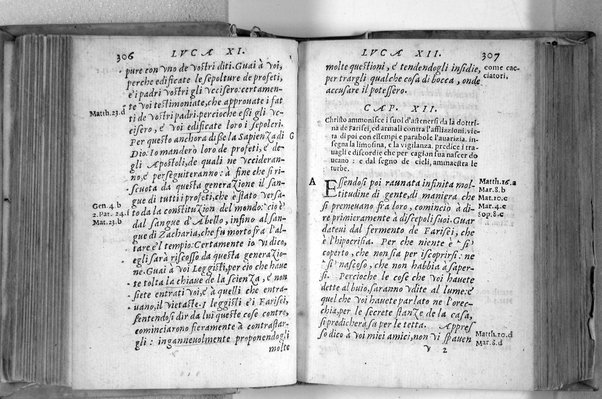 306 LVCA XI.
pure con vno de vostri diti. Guai à voi,
perche edificate le sepolture de profeti,
e i padri vostri gli vccisero: certamen-
Matth.23.d
te voi testimoniate, che approuate i fat
ti de vostri padri: percioche essi gli vc-
cisero, e voi edificate loro i sepolcri.
Per questo anchora disse la Sapienza di
G
Dio. Io manderò loro de profeti, e de-
gli Apostoli, de quali ne vccideran-
no, e perseguiteranno: à fine che si ri-
scuota da questa generazione il san-
gue di tutti i profeti, che è stato versa-
Gen.4.b
2.Par.24.l
Mat.23.b
to da la constituzion del mondo: cio è
dal sangue d'Abello, infino al san-
gue di Zacharia, che fu morto fra l'al-
tare e'l tempio: Certamente io vi dico,
egli sarà riscosso da questa generazio-
ne. Guai à voi Leggisti, per cio che haue
te tolta la chiaue de la scienza, e non
siete entrati voi, e à quelli che entra-
uano, il vietaste: i leggisti e i Farisei,
sentendosi dir da lui queste cose contro,
cominciarono fieramente à contrastar-
gli: ingannevolmente proponendogli
molte
LVCA XII. 307
molte questioni, e tendendogli insidie,
per trargli qualche cosa di bocca, onde
accusare il potessero.
come cac-
ciatori,
CAP. XII.
Christo ammonisce i suoi d'astenersi da la dottri-
na de Farisei, ed armali contra l'afflizzioni. vie-
ta di poi con essempi e parabole l'auarizia. in-
segna la limosina, e la vigilanza. predice i tra-
uagli e discordie che per cagion sua nascer do
ueano: e dal segno de cieli, ammaestra le
turbe.
A
Essendosi poi raunata infinita mol-
titudine di gente, di maniera che
si premeuano fra loro, cominciò à di-
re primieramente à discepoli suoi: Guar
dateui dal fermento de Farisei, che
è l'hipocrisia. Per che niente è sì
coperto, che non sia per iscoprirsi: ne
sì nascoso, che non habbia à saper-
si. Percioche le cose che voi hauete
dette al buio, saranno vdite al lume: e
quel che voi hauete parlato ne l'orec-
chia, per le secrete stanze de la casa,
si predicherà su per le tetta. Appres
so dico à voi miei amici, non vi spauen
Matth.16.a
Mar.8.b
Mat.10.c
Mar.4.c
Sop.8.c
Matth.10.d
Mar.8.d
V 2